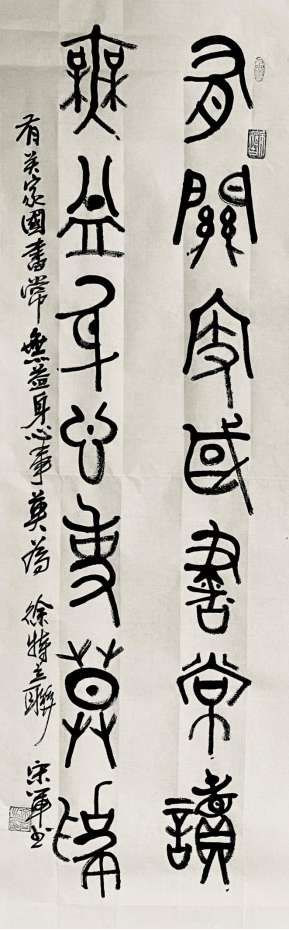 有關家國書常讀
無益身心事莫為
有关家國書常 無益身心事莫為 徐特立聯 宋軍书